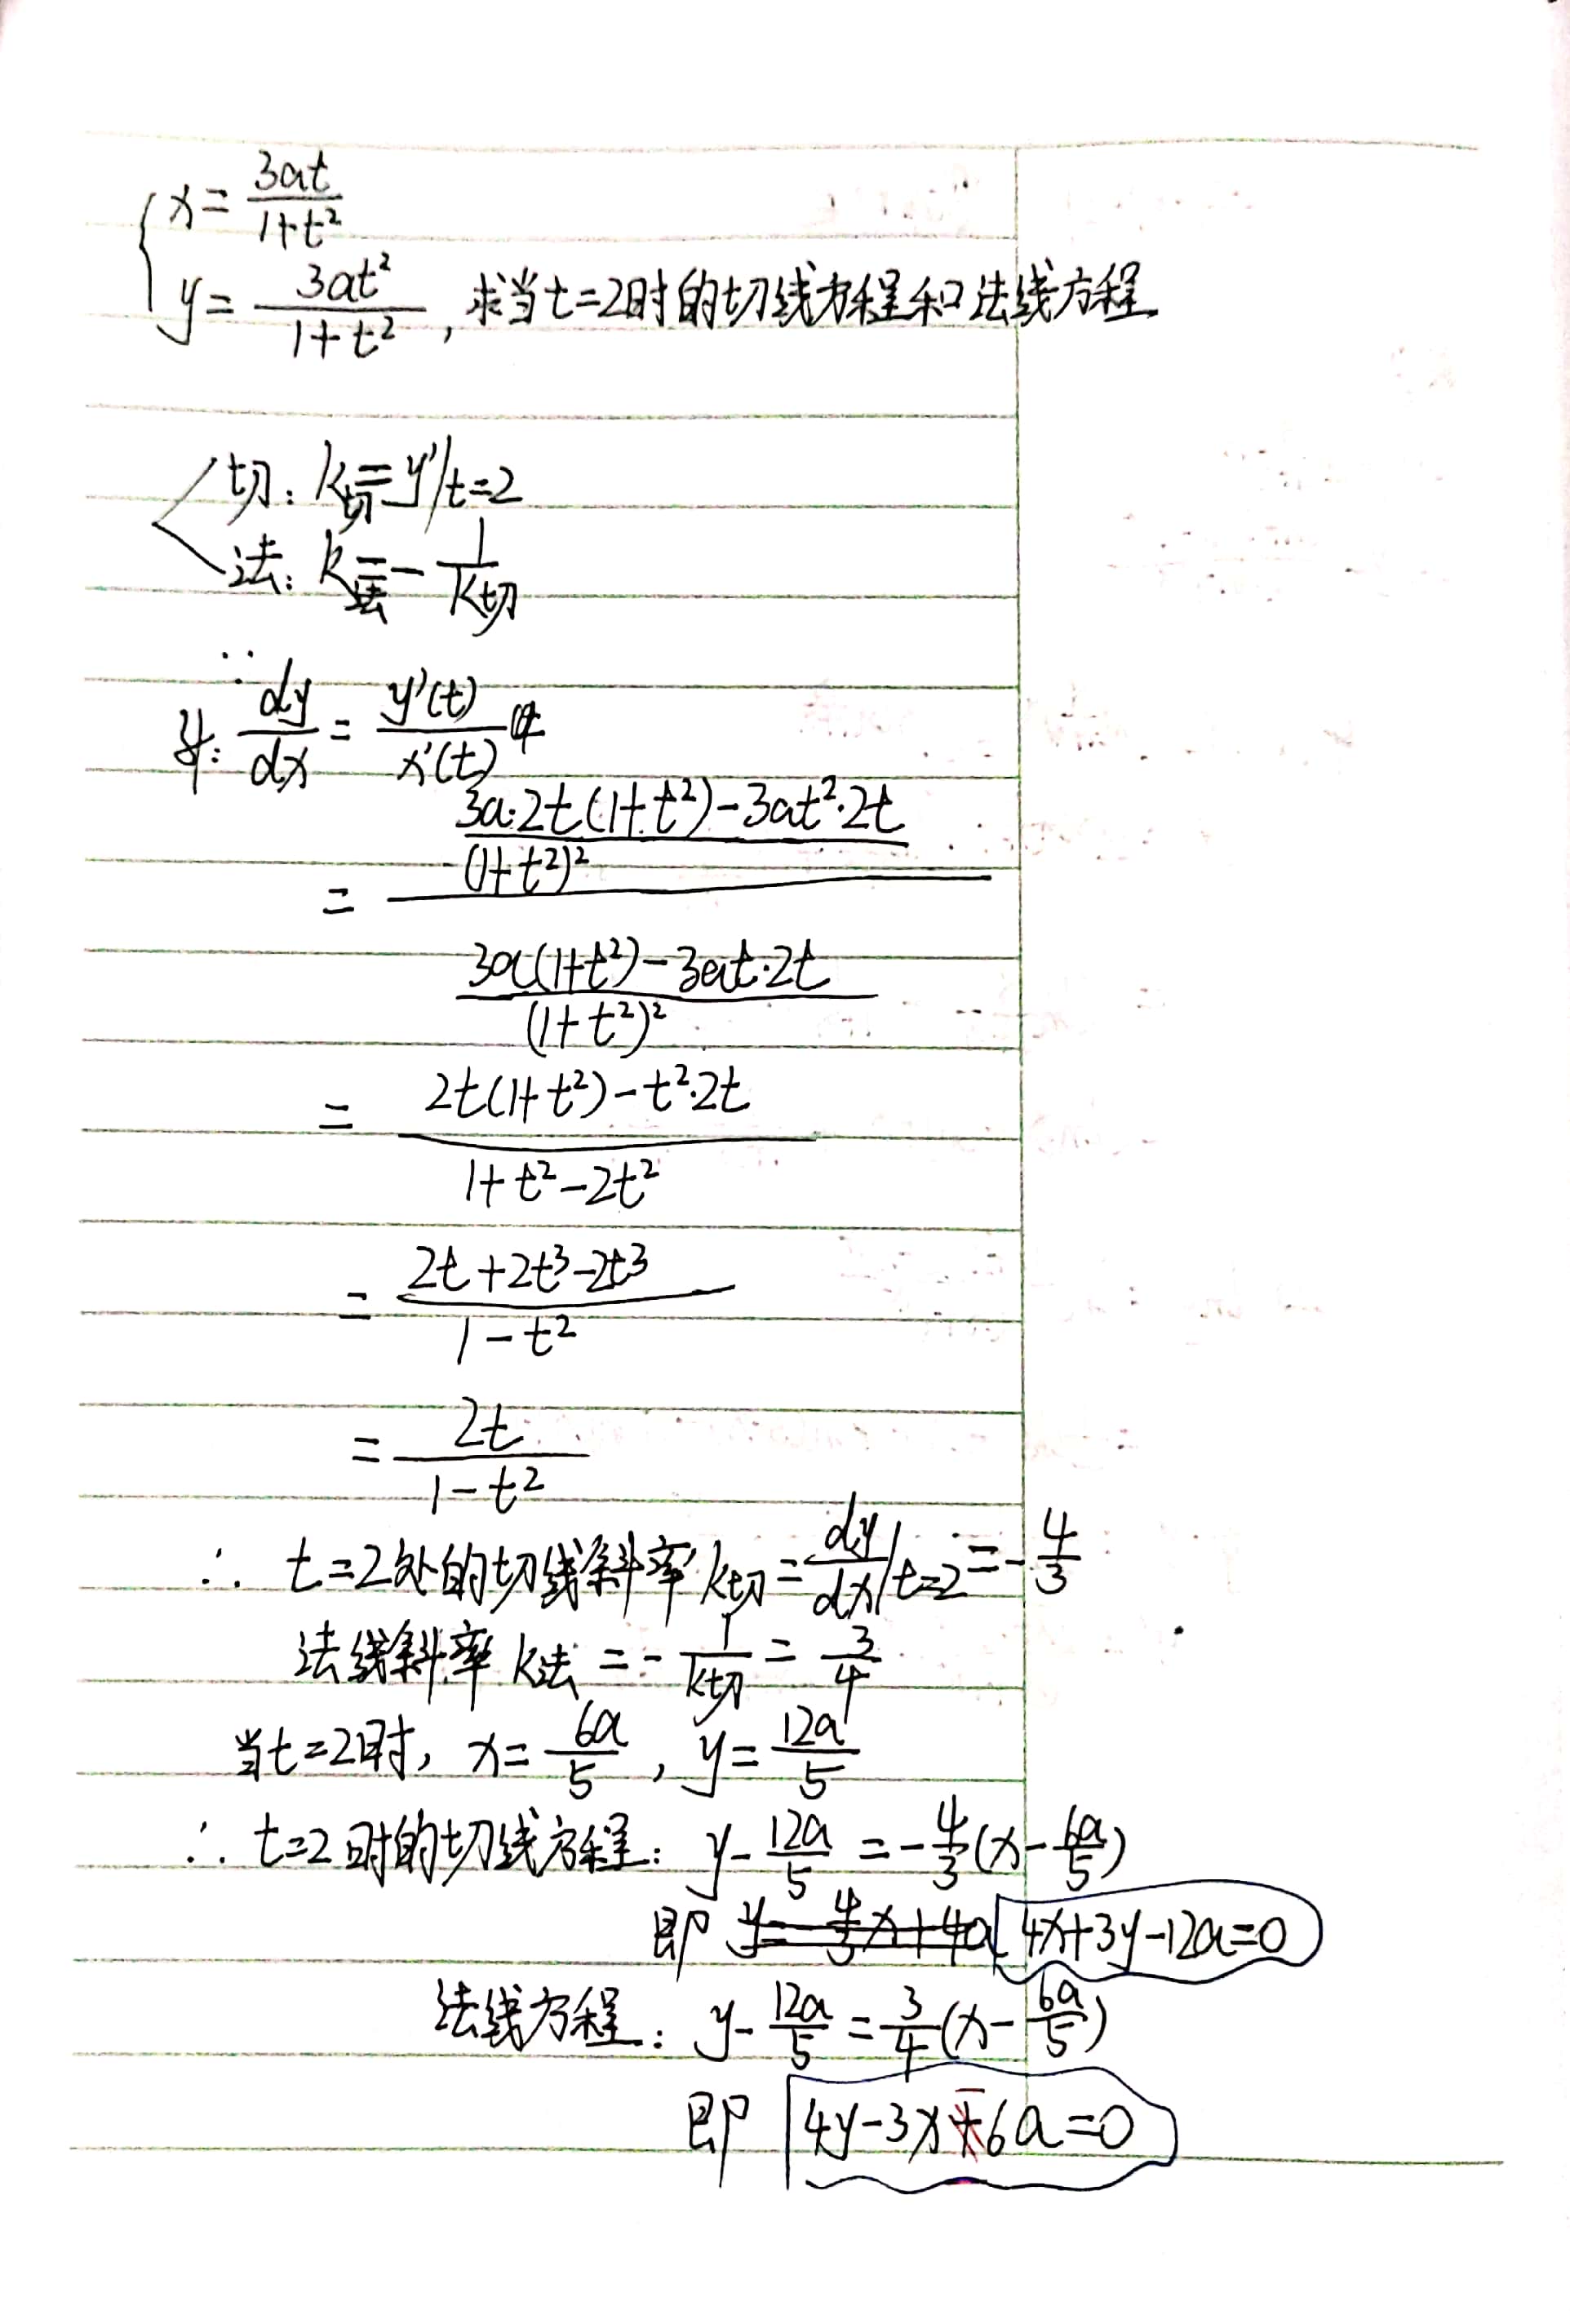 { x = 3at / (1+t²)
y = 3at² / (1+t²), 求当t=2时的切线方程和法线方程.
切: k切 = y'|t=2
法: k法 = - 1/k切
∵ dy/dx = y'(t) / x'(t)
= [ (3a·2t(1+t²) - 3at²·2t) / (1+t²)² ] / [ (3a(1+t²) - 3at·2t) / (1+t²)² ]
= (2t(1+t²) - t²·2t) / (1+t²-2t²)
= (2t+2t³-2t³) / (1-t²)
= 2t / (1-t²)
∴ t=2处的切线斜率 k切 = dy/dx|t=2 = - 4/3
法线斜率 k法 = - 1/k切 = 3/4
当t=2时, x = 6a/5, y = 12a/5
∴ t=2时的切线方程: y - 12a/5 = - 4/3 (x - 6a/5)
即 4x+3y-12a=0
法线方程: y - 12a/5 = 3/4 (x - 6a/5)
即 4y-3x-6a=0